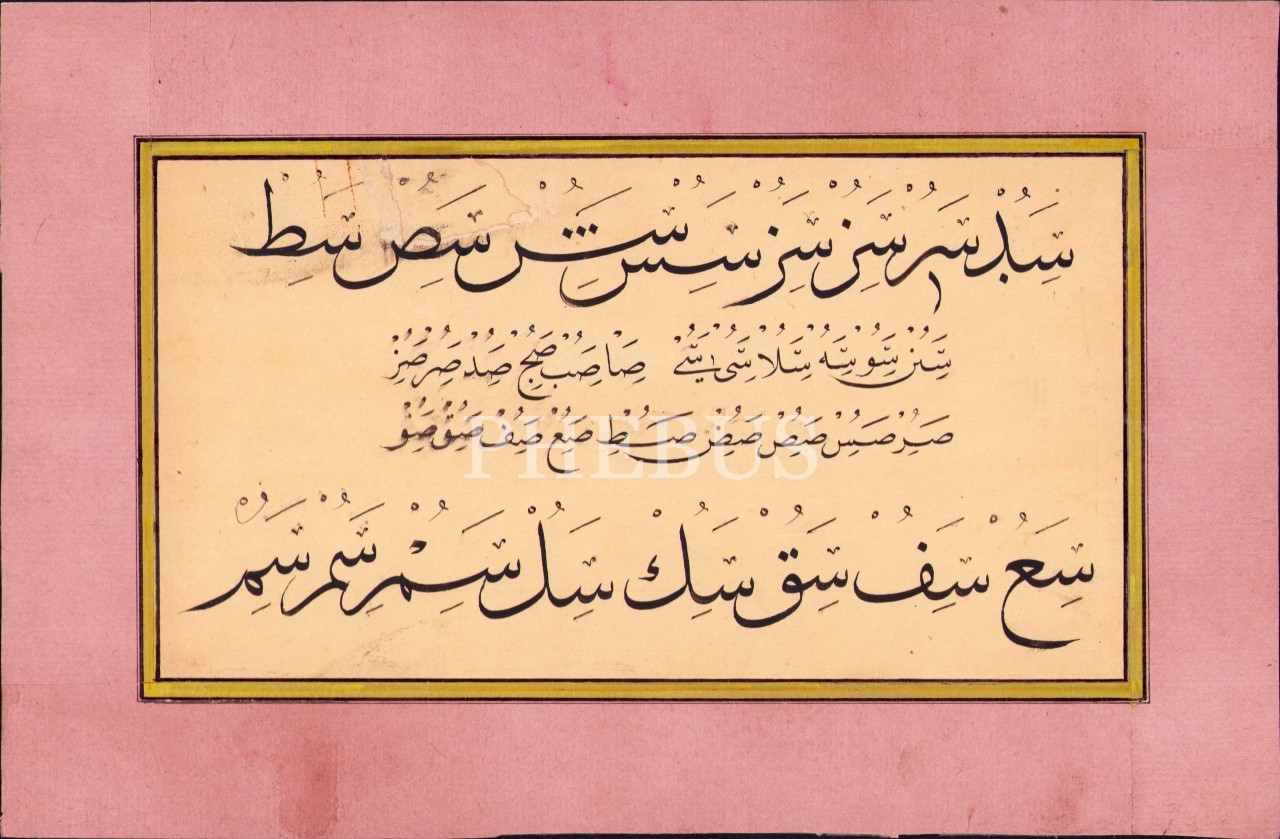 سد سر سز سز سس سش سص سط
سن سو سه سلا سی سے صا صب صج صد صر صز
صر صس صص صض صط صع صف صق صو
PHEBUS
سع سف سق سك سل سم سم سم